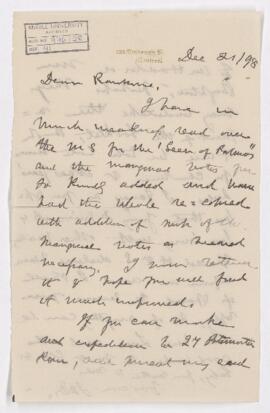 McGILL UNIVERSITY
ARCHIVES
ACC. NO.
REF.
Montreal
Dec 21/98
Dear Rankine,
I have in
much weakness read over
the MS for the "Seer of Patmos"
and the marginal notes you
so kindly added and have
had the whole re=copied
with addition of such of the
marginal notes as seemed
necessary. I now return
it & hope you will find
it much improved.
If you can make
and expedition to 27 Paternoster
Row, and present my card